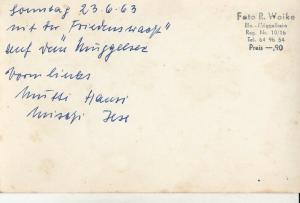 Sonntag 23.6.63
mit der "Friedenswacht"
auf dem Müggelsee
Vorn links
Mutti Hansi
Foto R. Woike
Bln.-Müggelheim
Reg. Nr. 10/16
Tel. 64 96 64
Preis —,90